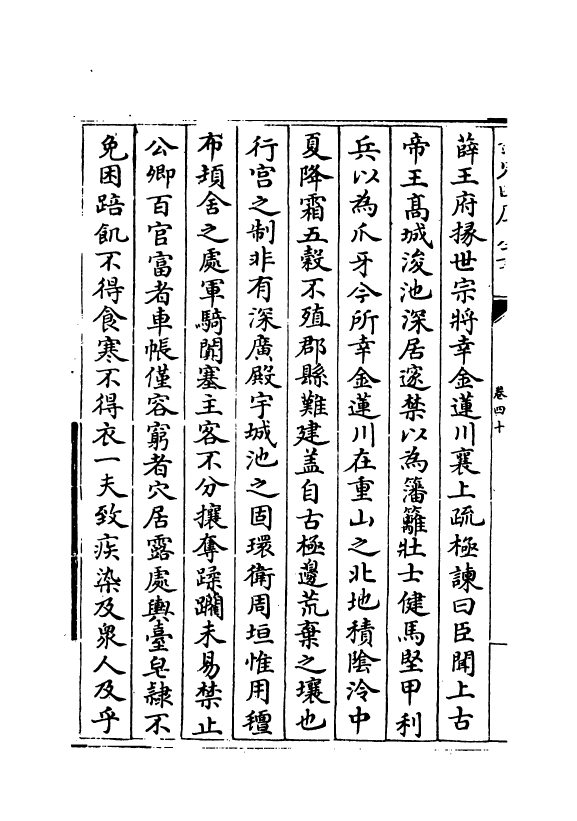 薛王府掾世宗將幸金蓮川襄上疏極諫曰臣聞上古
帝王髙城浚池深居邃禁以為籓籬壯士健馬堅甲利
兵以為爪牙今所幸金蓮川在重山之北地積陰泠中
夏降霜五穀不殖郡縣難建盖自古極邊荒棄之壤也
行宫之制非有深廣殿宇城池之固環衛周垣惟用氊
布頓舍之處軍騎闐塞主客不分攘奪蹂躝未易禁止
公卿百官富者車帳僅容窮者穴居露處輿臺皂隷不
免困踣飢不得食寒不得衣一夫致疾染及衆人及乎
卷四十